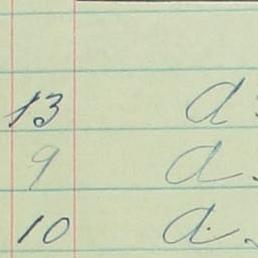 13 a.
9 a.
10 a.